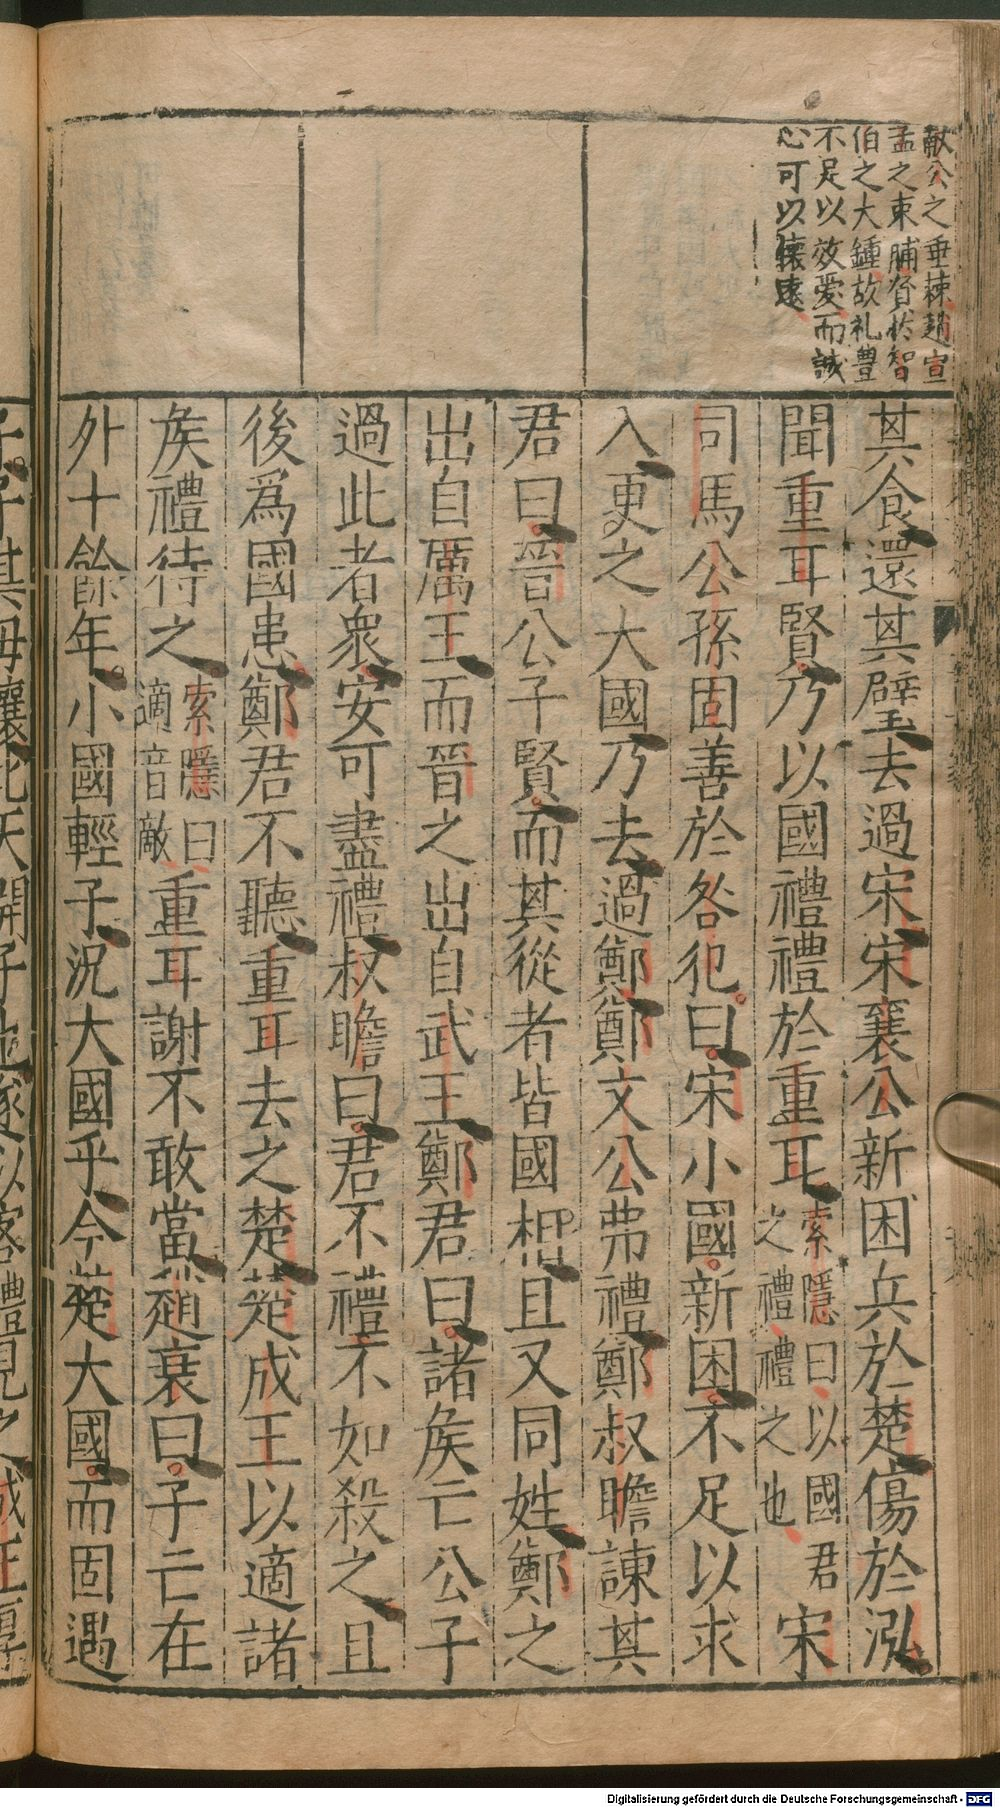 獻公之垂棘趙宣
孟之束脯智
伯之大鍾故礼豊
不足以效愛而誠
心可以懷遠
其食還其璧去過宋宋襄公新困兵於楚傷於泓
聞重耳賢乃以國禮禮於重耳
索隱曰以國君
之禮禮之也
宋
司馬公孫固善於咎犯曰宋小國新困不足以求
入更之大國乃去過鄭鄭文公弗禮鄭叔瞻諫其
君曰晉公子賢而其從者皆國相且又同姓鄭之
出自厲王而晉之出自武王鄭君曰諸矦亡公子
過此者衆安可盡禮叔瞻曰君不禮不如殺之且
後爲國患鄭君不聽重耳去之楚楚成王以適諸
矦禮待之
索隱曰
適音敵
重耳謝不敢當趙衰曰子亡在
外十餘年小國輕子况大國乎今楚大國而固遇
Digitalisierung gefördert durch die Deutsche Forschungsgemeinschaft - DFG